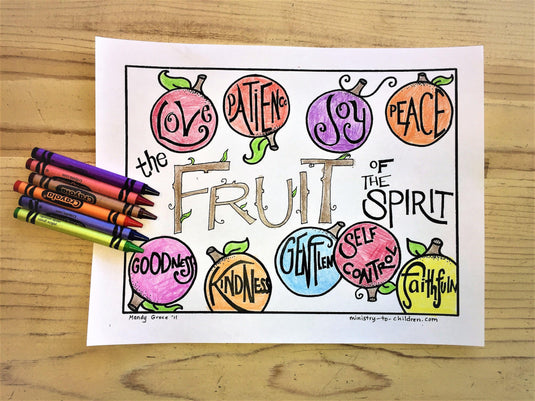 LOVE
PATIENCE
JOY
PEACE
the
FRUIT
OF
THE
SPIRIT
GOODNESS
KINDNESS
GENTLEN
SELF
CONTROL
faithfuln
Mandy Groce '11
ministry-to-children.com
Crayola